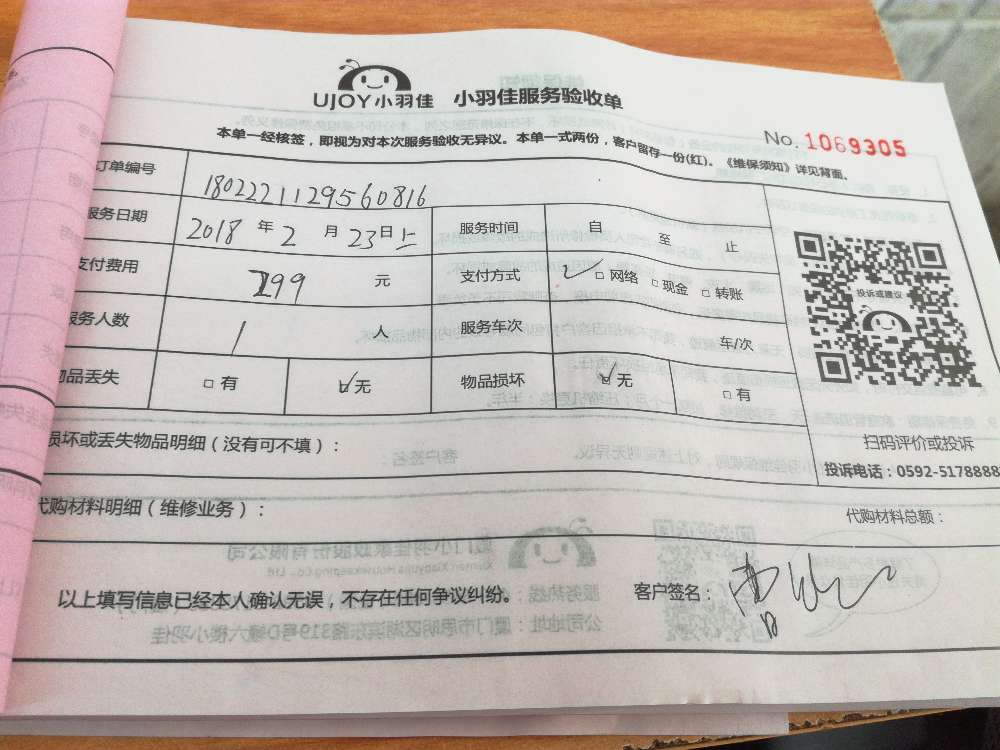 UJOY小羽佳 小羽佳服务验收单
No. 1069305
本单一经核签，即视为对本次服务验收无异议。本单一式两份，客户留存一份(红)。《维保须知》详见背面。
订单编号 1802221129560816
服务日期 2018 年 2 月 23 日上 服务时间 自 至 止
支付费用 199 元 支付方式 ✓□ 网络 □ 现金 □ 转账
投诉或建议
服务人数 1 人 服务车次 车/次
物品丢失 □ 有 ☑ 无 物品损坏 ☑ 无 □ 有
扫码评价或投诉
损坏或丢失物品明细（没有可不填）：
投诉电话：0592-5178888
代购材料明细（维修业务）：
代购材料总额：
以上填写信息已经本人确认无误，不存在任何争议纠纷。 客户签名：